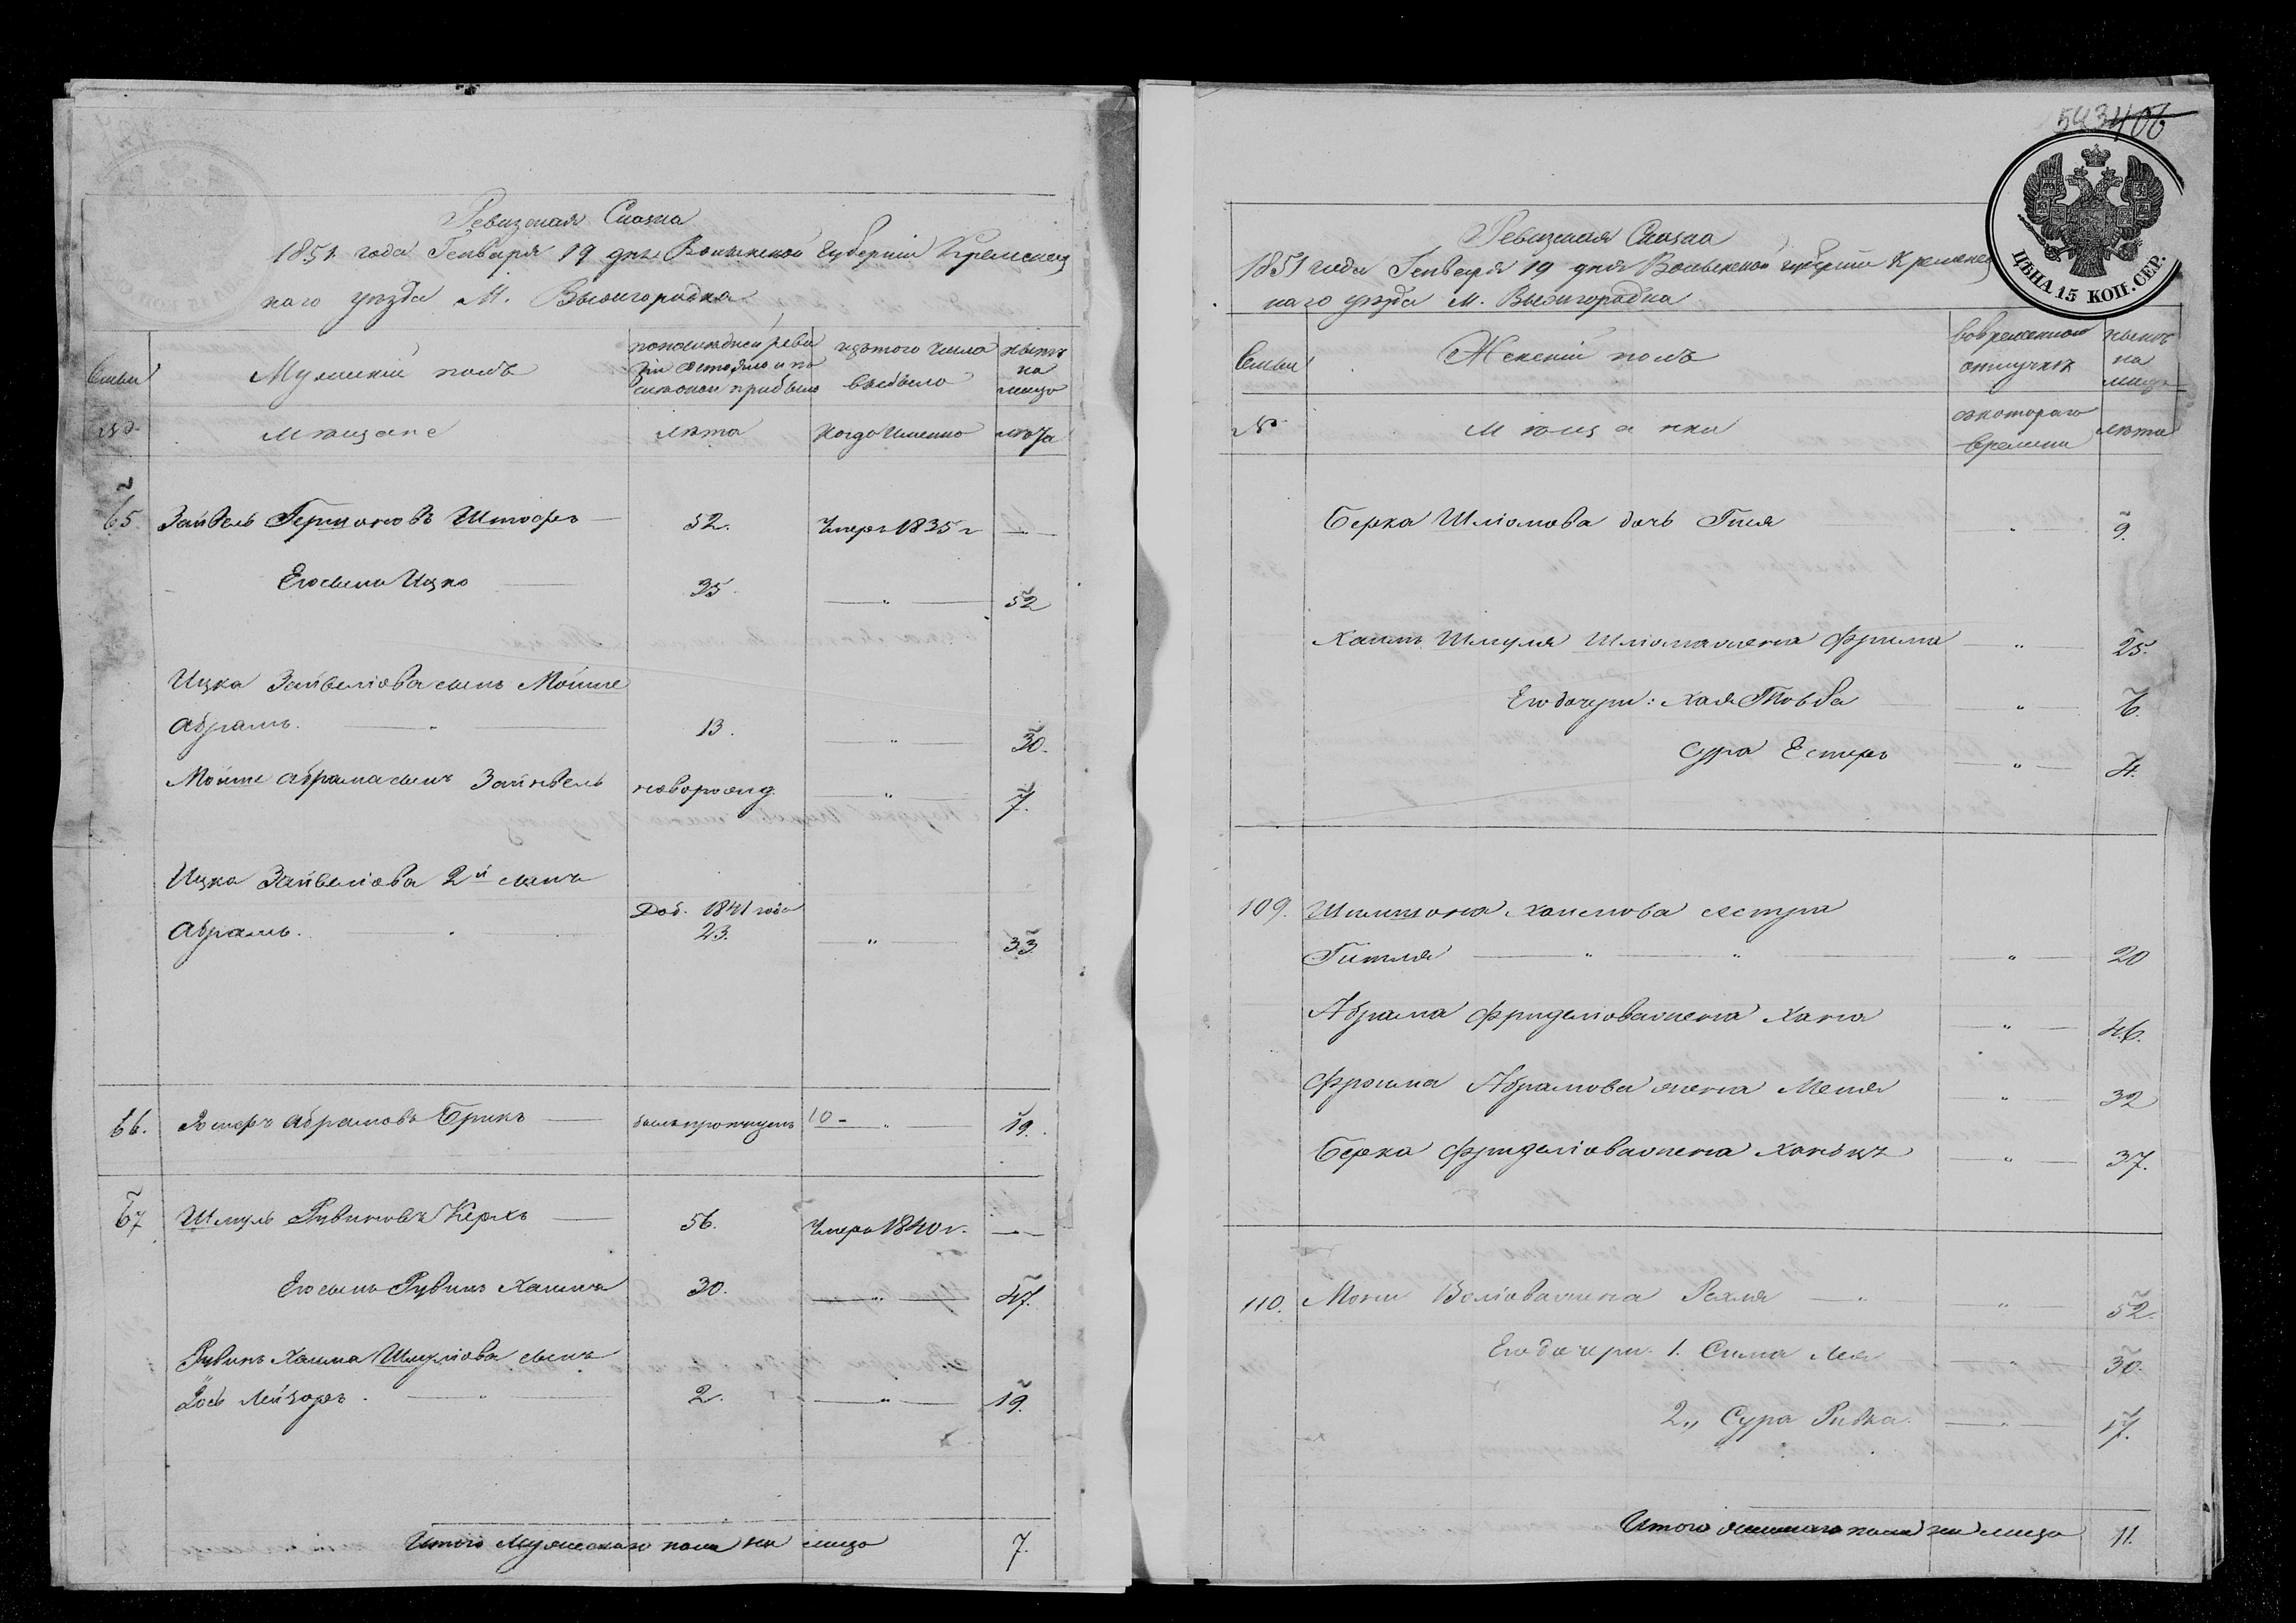 Ревизская Сказка
1851 года Генваря 19 дня Волынской Губерніи Кременец
каго уезда М. Вышгородка
Семьи
Мужескій полъ
по последней реви
зіи состояло и по
прибыло
изъ того числа
выбыло
ныне
на
лицо
№
Мещане
лета
Когда Именно
лета
65.
Зайвель Гершоновъ Штофъ
52.
Умеръ 1835 г
Его сынъ Ицко
35.
52
Ицка Зайвеліова сынъ Мойше
Абрамъ.
13.
30.
Мойше Абрама сынъ Зайвель
новорожд.
7.
Ицка Зайвеліова 2й сынъ
Доб. 1841 года
Абрамъ.
23.
33
66.
Абрамовъ Брикъ
былъ пропущенъ
10
19.
67
Шмуль Рувиновъ
56.
Умеръ 1840 г.
Его сынъ Рувинъ Хаима
30.
47.
Рувинъ Хаима Шмуліова сынъ
Іось Лейзоръ.
2.
19.
Итого Мужескаго пола на лицо
7.
406
ЦѢНА 15 КОП. СЕР.
Ревизская Сказка
1851 года Генваря 19 дня Волынской губерніи Кременец
каго уезда М. Вышгородка
Семьи
Женскій полъ
во временной
отлучке
ныне
на
лицо
№
Мещанки
съ котораго
времени
лета
Берка Шліомова дочь Гися
9.
Хаимъ Шмуля Шліомы жена Фрима
25.
Его дочери: Хая Товба
6.
Сура Естеръ
4.
109.
Шимшона Хаимова сестра
Гитля
20
Абрама Фриделіова жена Хана
46.
Фроима Абрамова жена Меня
32
Берка Фриделіова жена
37.
110.
Мошка Веліова жена Рахля
52.
Его дочери 1. Сима Лея
30.
2„ Сура Ривка.
17.
Итого женскаго пола на лицо
11.